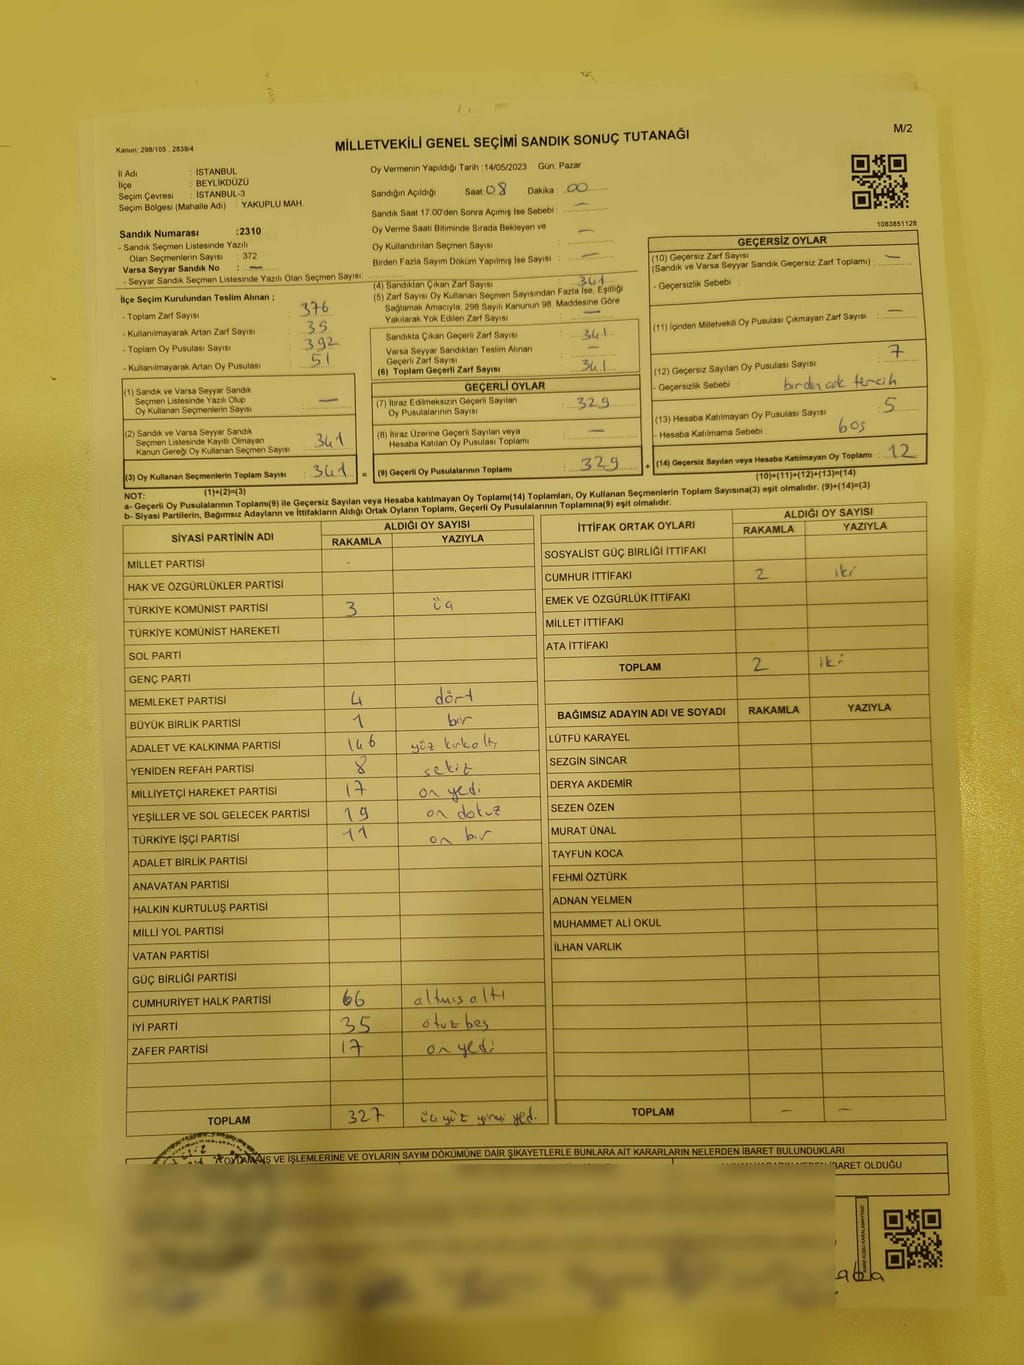 M/2
Kanun: 298/105 , 2839/4
MİLLETVEKİLİ GENEL SEÇİMİ SANDIK SONUÇ TUTANAĞI
İl Adı : İSTANBUL
İlçe : BEYLİKDÜZÜ
Seçim Çevresi : İSTANBUL-3
Seçim Bölgesi (Mahalle Adı) : YAKUPLU MAH.
Sandık Numarası :2310
- Sandık Seçmen Listesinde Yazılı
Olan Seçmenlerin Sayısı : 372
Varsa Seyyar Sandık No : —
- Seyyar Sandık Seçmen Listesinde Yazılı Olan Seçmen Sayısı:
Oy Vermenin Yapıldığı Tarih :14/05/2023 Gün: Pazar
Sandığın Açıldığı Saat: 08 Dakika : 00
Sandık Saat 17:00'den Sonra Açımış İse Sebebi : —
Oy Verme Saati Bitiminde Sırada Bekleyen ve
Oy Kullandırılan Seçmen Sayısı : —
Birden Fazla Sayım Döküm Yapılmış İse Sayısı : —
1083851128
İlçe Seçim Kurulundan Teslim Alınan ;
- Toplam Zarf Sayısı : 376
- Kullanılmayarak Artan Zarf Sayısı : 35
- Toplam Oy Pusulası Sayısı : 392
- Kullanılmayarak Artan Oy Pusulası : 51
(1) Sandık ve Varsa Seyyar Sandık
Seçmen Listesinde Yazılı Olup
Oy Kullanan Seçmenlerin Sayısı : —
(2) Sandık ve Varsa Seyyar Sandık
Seçmen Listesinde Kayıtlı Olmayan
Kanun Gereği Oy Kullanan Seçmen Sayısı : 341
(3) Oy Kullanan Seçmenlerin Toplam Sayısı : 341
(1)+(2)=(3)
(4) Sandıktan Çıkan Zarf Sayısı : 341
(5) Zarf Sayısı Oy Kullanan Seçmen Sayısından Fazla İse, Eşitliği
Sağlamak Amacıyla, 298 Sayılı Kanunun 98. Maddesine Göre
Yakılarak Yok Edilen Zarf Sayısı : —
Sandıkta Çıkan Geçerli Zarf Sayısı : 341
Varsa Seyyar Sandıktan Teslim Alınan
Geçerli Zarf Sayısı : —
(6) Toplam Geçerli Zarf Sayısı : 341
GEÇERLİ OYLAR
(7) İtiraz Edilmeksizin Geçerli Sayılan
Oy Pusulalarının Sayısı : 329
(8) İtiraz Üzerine Geçerli Sayılan veya
Hesaba Katılan Oy Pusulası Toplamı : —
= (9) Geçerli Oy Pusulalarının Toplamı : 329
GEÇERSİZ OYLAR
(10) Geçersiz Zarf Sayısı
(Sandık ve Varsa Seyyar Sandık Geçersiz Zarf Toplamı) : —
- Geçersizlik Sebebi :
(11) İçinden Milletvekili Oy Pusulası Çıkmayan Zarf Sayısı : —
(12) Geçersiz Sayılan Oy Pusulası Sayısı : 7
- Geçersizlik Sebebi : birden çok tercih
(13) Hesaba Katılmayan Oy Pusulası Sayısı : 5
- Hesaba Katılmama Sebebi : boş
+ (14) Geçersiz Sayılan veya Hesaba Katılmayan Oy Toplamı : 12
(10)+(11)+(12)+(13)=(14)
NOT:
a- Geçerli Oy Pusulalarının Toplamı(9) ile Geçersiz Sayılan veya Hesaba Katılmayan Oy Toplamı(14) Toplamları, Oy Kullanan Seçmenlerin Toplam Sayısına(3) eşit olmalıdır. (9)+(14)=(3)
b- Siyasi Partilerin, Bağımsız Adayların ve İttifakların Aldığı Ortak Oyların Toplamı, Geçerli Oy Pusulalarının Toplamına(9) eşit olmalıdır.
SİYASİ PARTİNİN ADI ALDIĞI OY SAYISI
RAKAMLA YAZIYLA
MİLLET PARTİSİ
HAK VE ÖZGÜRLÜKLER PARTİSİ
TÜRKİYE KOMÜNİST PARTİSİ 3 üç
TÜRKİYE KOMÜNİST HAREKETİ
SOL PARTİ
GENÇ PARTİ
MEMLEKET PARTİSİ 4 dört
BÜYÜK BİRLİK PARTİSİ 1 bir
ADALET VE KALKINMA PARTİSİ 146 yüz kırkaltı
YENİDEN REFAH PARTİSİ 8 sekiz
MİLLİYETÇİ HAREKET PARTİSİ 17 on yedi
YEŞİLLER VE SOL GELECEK PARTİSİ 19 on dokuz
TÜRKİYE İŞÇİ PARTİSİ 11 on bir
ADALET BİRLİK PARTİSİ
ANAVATAN PARTİSİ
HALKIN KURTULUŞ PARTİSİ
MİLLİ YOL PARTİSİ
VATAN PARTİSİ
GÜÇ BİRLİĞİ PARTİSİ
CUMHURİYET HALK PARTİSİ 66 altmış altı
İYİ PARTİ 35 otuz beş
ZAFER PARTİSİ 17 on yedi
TOPLAM 327 üç yüz yirmi yedi
İTTİFAK ORTAK OYLARI ALDIĞI OY SAYISI
RAKAMLA YAZIYLA
SOSYALİST GÜÇ BİRLİĞİ İTTİFAKI
CUMHUR İTTİFAKI 2 iki
EMEK VE ÖZGÜRLÜK İTTİFAKI
MİLLET İTTİFAKI
ATA İTTİFAKI
TOPLAM 2 iki
BAĞIMSIZ ADAYIN ADI VE SOYADI RAKAMLA YAZIYLA
LÜTFÜ KARAYEL
SEZGİN SİNCAR
DERYA AKDEMİR
SEZEN ÖZEN
MURAT ÜNAL
TAYFUN KOCA
FEHMİ ÖZTÜRK
ADNAN YELMEN
MUHAMMET ALİ OKUL
İLHAN VARLIK
TOPLAM — —
VE İŞLEMLERİNE VE OYLARIN SAYIM DÖKÜMÜNE DAİR ŞİKAYETLERLE BUNLARA AİT KARARLARIN NELERDEN İBARET BULUNDUKLARI
İBARET OLDUĞU